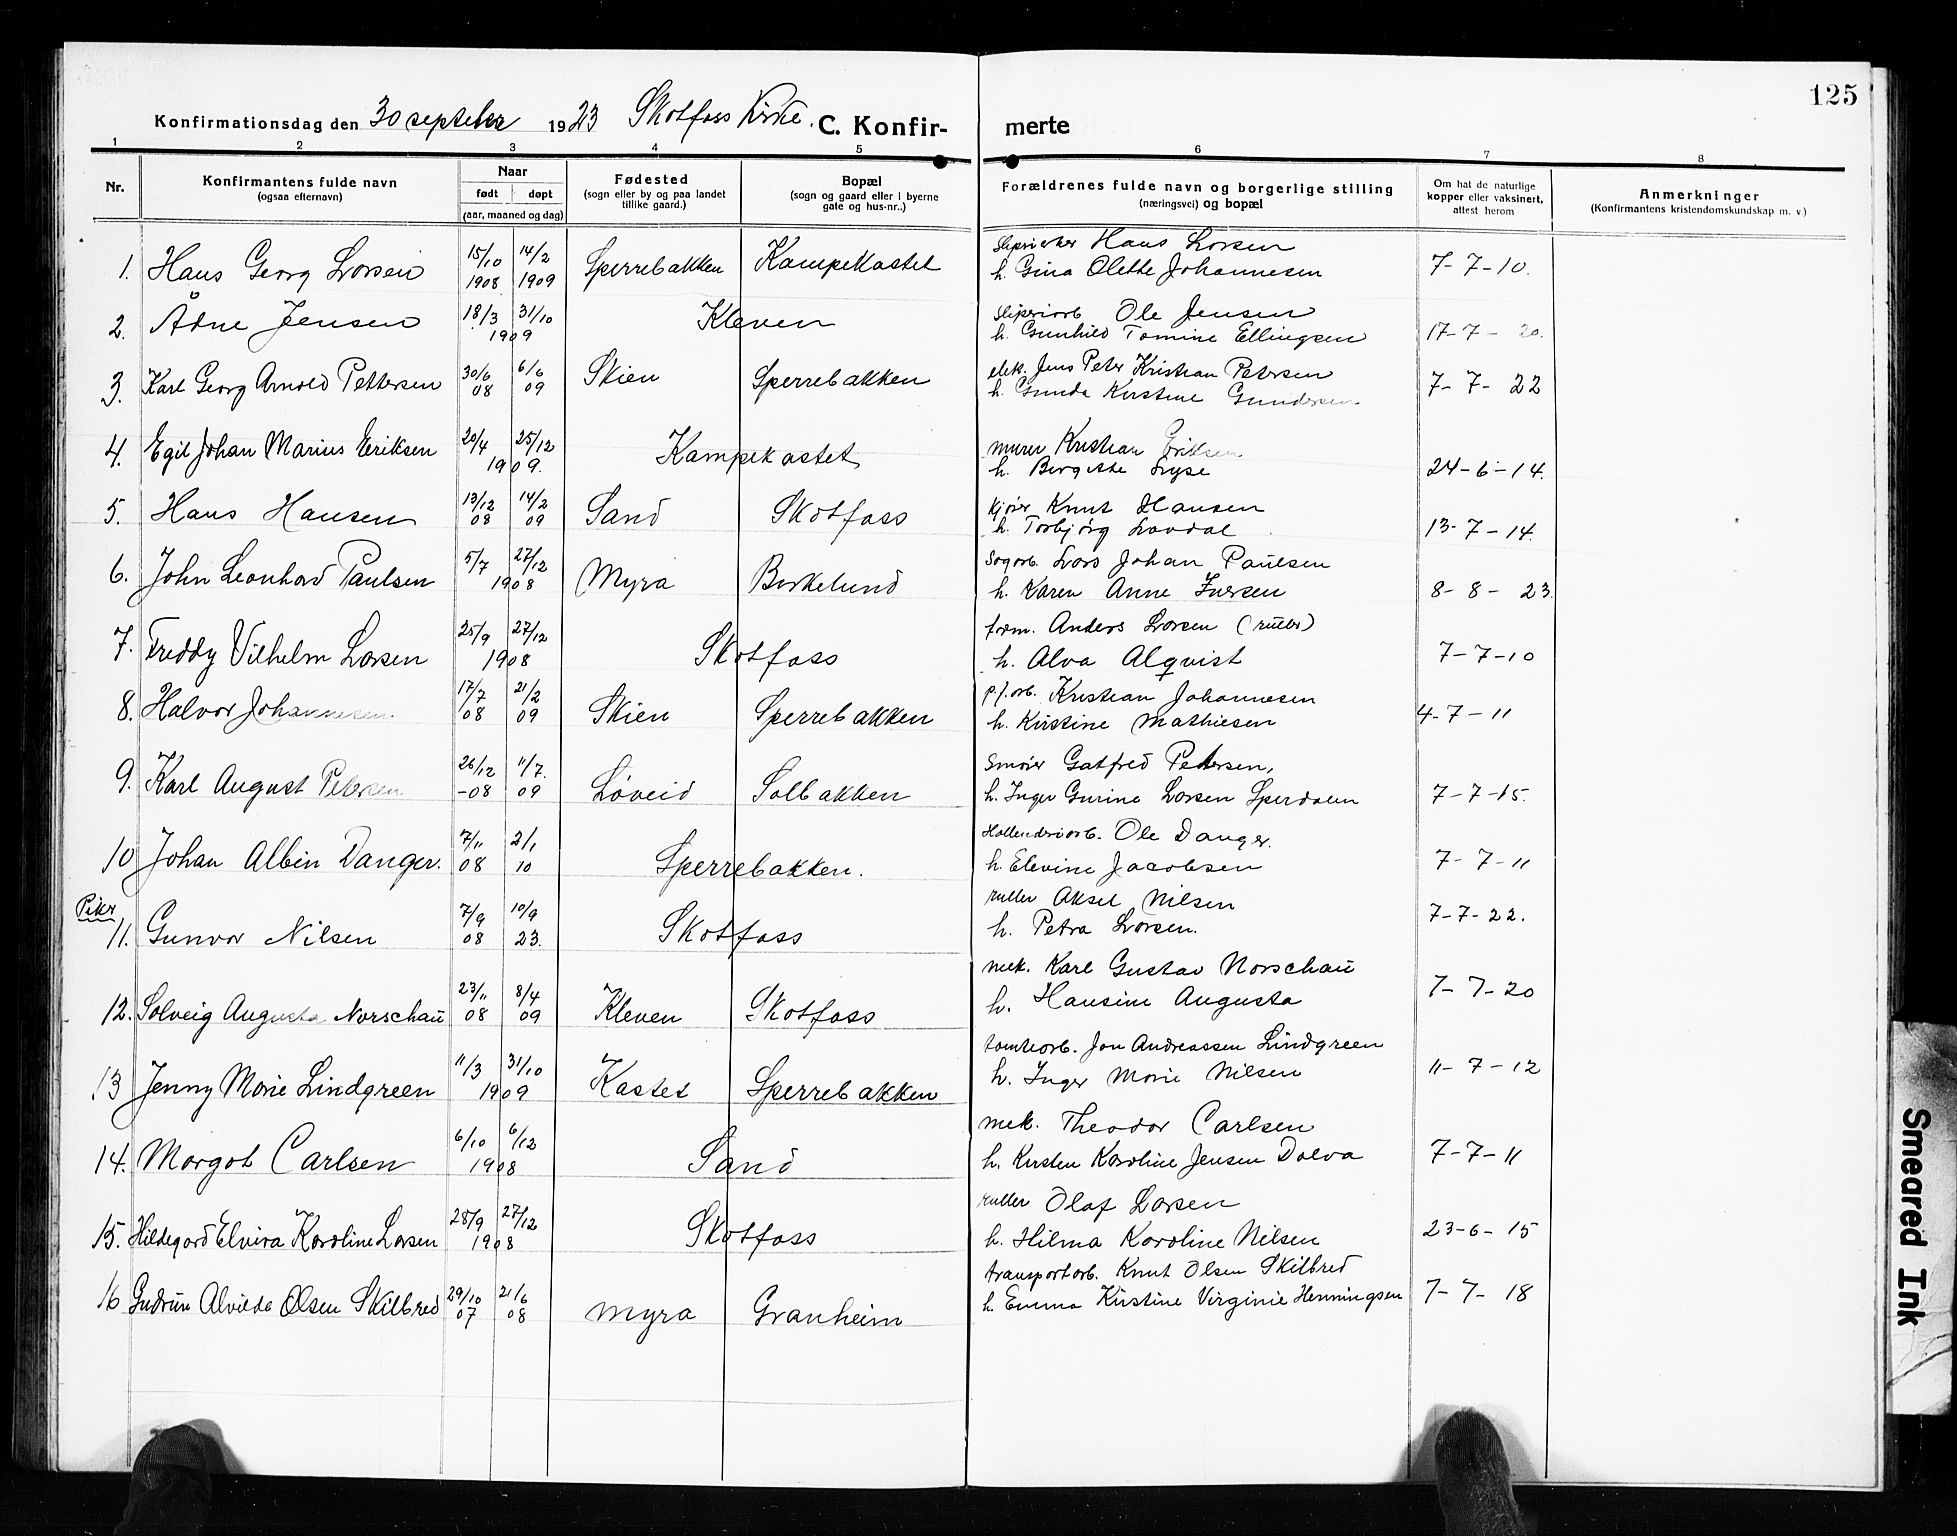 125
Konfirmationsdag den 30 septeber 1923 Skotfoss Kirke. C. Konfir- merte
1 2 3 4 5 6 7 8
Nr. Konfirmantens fulde navn (ogsaa efternavn) Naar født døpt (aar, maaned og dag) Fødested (sogn eller by og paa landet tillike gaard.) Bopæl (sogn og gaard eller i byerne gate og hus-nr..) Forældrenes fulde navn og borgerlige stilling (næringsvei) og bopæl Om hat de naturlige kopper eller vaksinert, attest herom Anmerkninger (Konfirmantens kristendomskundskap m. v.)
1. Hans Georg Larsen 15/10 1908 14/2 1909 Sperrebakken Kampekastet Hans Larsen
h. Gina Olette Johannesen 7-7-10.
2. Ådne Jensen 18/3 31/10 1909 Kleven sliperiarb Ole Jensen
h. Gunhild Tomine Ellingsen 17-7-20.
3. Karl Georg Arnold Pettersen 30/6 08 6/6 09 Skien Sperrebakken elek. Jens Peter Kristian Petersen
h. Gunda Kirstine Gundersen 7-7-22
4. Egil Johan Marius Eriksen 20/4 25/12 1909. Kampekastet murer Kristian Eriksen
h. Bergitte Lyse 24-6-14.
5. Hans Hansen 13/12 08 14/2 09 Sand Skotfoss kjører Knut Hansen
h. Torbjørg Lavdal 13-7-14.
6. John Leonhard Paulsen 5/7 27/12 1908 Myra Birkelund sagarb. Lars Johan Paulsen
h. Karen Anne Iversen 8-8-23.
7. Freddy Vilhelm Larsen 25/9 27/12 1908 Skotfoss form. Anders Larsen (ruller)
h. Alva Alqvist 7-7-10
8. Halvor Johannesen. 17/7 08 21/2 09 Skien Sperrebakken p.f.arb. Kristian Johannesen
h. Kirstine Mathiesen 4-7-11
9. Karl August Petersen 26/12 -08 11/7. 09 Løveid Solbakken smører Gatfred Petersen,
h. Inger Gurine Larsen Sperdalen 7-7-15.
10 Johan Albin Danger. 7/11 08 2/1 10 Sperrebakken. Hollenderiarb. Ole Danger.
h. Elevine Jacobsen 7-7-11
Piker
11. Gunvor Nilsen 7/9 08 10/9 23. Skotfoss ruller Aksel Nilsen
h. Petra Larsen. 7-7-22.
12. Solveig Augusta Norschau 23/11 08 8/4 09 Kleven Skotfoss mek. Karl Gustav Norschau
h. Hansine Augusta 7-7-20
13 Jenny Marie Lindgreen 11/3 31/10 1909 Kastet Sperrebakken tomtearb. Jon Andreassen Lindgreen
h. Inger Marie Nilsen 11-7-12
14. Margot Carlsen 6/10 6/12 1908 Sand mek. Theodor Carlsen
h. Kirsten Karoline Jensen Dolva 7-7-11
15. Hildegard Elvira Karoline Larsen 28/9 27/12 1908 Skotfoss ruller Olaf Larsen
h. Hilma Karoline Nilsen 23-6-15
16 Gudrun Alvilde Olsen Skilbred 29/10 07 21/6 08 Myra Granheim transportarb. Knut Olsen Skilbred
h. Emma Kirstine Virginie Henningsen 7-7-18
Smeared Ink